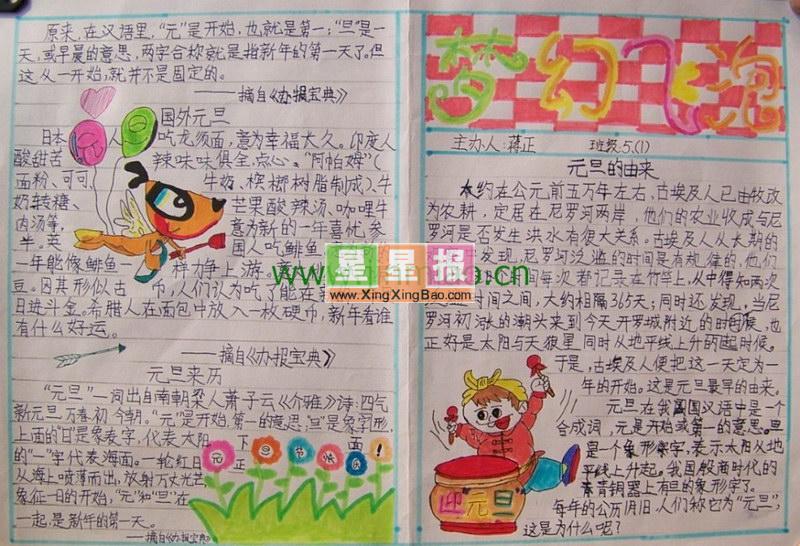 原来,在汉语里,“元”是开始,也就是第一;“旦”是一
天,或早晨的意思,两字合称就是指新年的第一天了。但
这从一开始,就并不是固定的。
——摘自《办报宝典》
国外元旦
日本 人 吃龙须面,意为幸福长久。印度人
酸甜苦 辣味味俱全,点心。“阿帕姆”(
面粉、可可, 牛奶、槟榔树脂制成)、牛
奶转糖、 芒果酸辣汤、咖哩牛
肉汤等, 意为新的一年喜忧参
半。英 国人吃鲱鱼
一年能像鲱鱼一 样力争上游。
豆。因其形似古 币,人们认为吃了能在
日进斗金。希腊人在面包中放入一枚硬币,新年看谁
有什么好运。
——摘自《办报宝典》
元旦来历
“元旦”一词出自南朝梁人萧子云《介雅》诗:四气
新元旦万春初今朝。“元”是开始,第一的意思,“旦”是象形字,
上面的“日”是象表字,代表太阳 下面
的“一”字代表海面。一轮红日
从海上喷薄而出,放射万丈光芒
象征一日的开始,“元”和“旦”在
一起,是新年的第一天。
——摘自《办报宝典》
元 旦 快 乐 !
梦幻飞泡
主办人:蒋正 班级5.(1)
元旦的由来
大约在公元前五万年左右,古埃及人已由牧改
为农耕,定居在尼罗河两岸,他们的农业收成与尼
罗河是否发生洪水有很大关系。古埃及人从长期的
发现,尼罗河泛滥的时间是有规律的,他们
间每次都记录在竹竿上,从中得知两次
时间之间,大约相隔365天;同时还发现,当尼
罗河初涨的潮头来到今天开罗城附近的时候,也
正好是太阳与天狼星同时从地平线上升的起时候。
于是,古埃及人便把这一天定为一
年的开始。这是元旦最早的由来。
元旦在我国汉语中是一个
合成词,元是开始或第一的意思。旦
是一个象形字,表示太阳从地
平线上升起。我国殷商时代的
青铜器上有旦的象形字了。
每年的公历1月1日,人们称它为“元旦”,
这是为什么呢?
迎“元旦”
星星报
www.XingXingBao.com